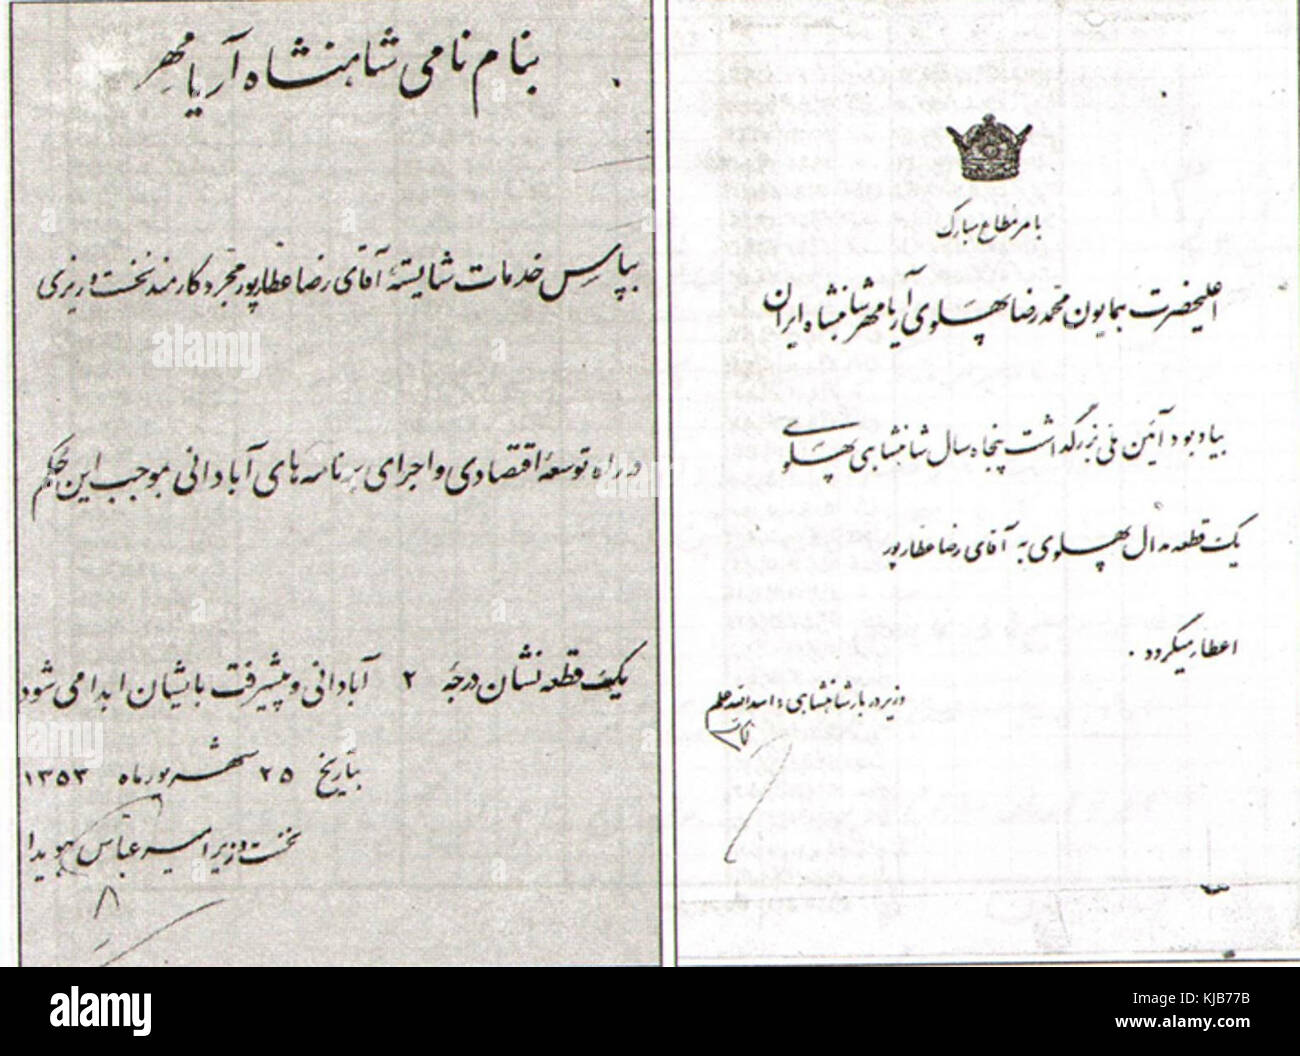 بنام نامی شاهنشاه آریامهر
بپاس خدمات شایستهٔ آقای رضا عطارپور مجرد کارمند نخست وزیری
در راه توسعهٔ اقتصادی و اجرای برنامه های آبادانی بموجب این حکم
یک قطعه نشان درجهٔ ۲ آبادانی و پیشرفت بایشان اهدا می شود
بتاریخ ۲۵ شهریور ماه ۱۳۵۳
نخست وزیر امیر عباس هویدا
بامر مطاع مبارک
اعلیحضرت همایون محمد رضا پهلوی آریامهر شاهنشاه ایران
بیادبود آئین ملی بزرگداشت پنجاه سال شاهنشاهی پهلوی
یک قطعه مدال پهلوی به آقای رضا عطارپور
اعطا میگردد .
وزیر دربار شاهنشاهی : اسدالله علم
alamy
Image ID: KJB77B
www.alamy.com